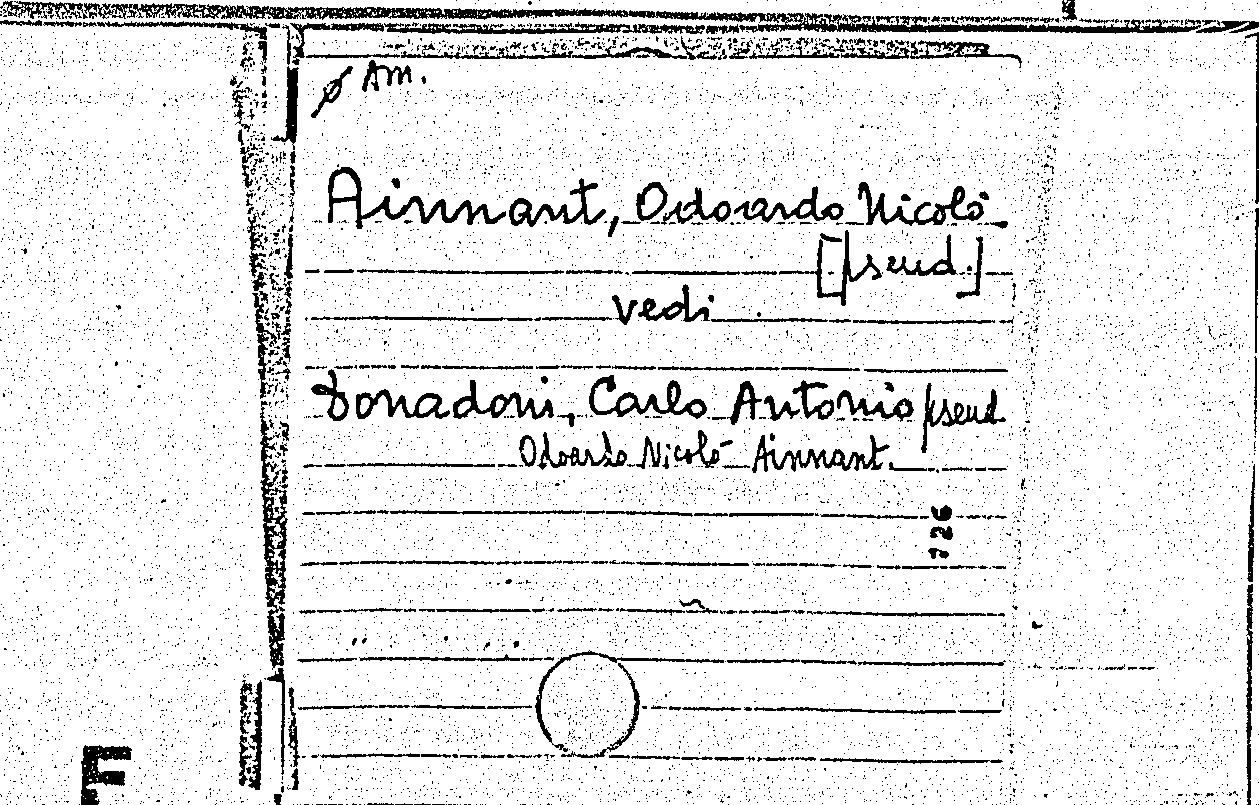 Ø Am.
Ainnant, Odoardo Nicolò
[pseud.]
vedi
Donadoni, Carlo Antonio pseud.
Odoardo Nicolò Ainnant.
726
F